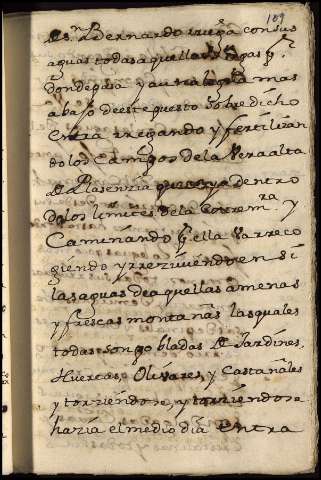 109
de Sn Bernardo riega con sus
aguas todas aquellas vegas pr
donde guia y a una legua mas
abajo de este puesto sobre dicho
entra rregando y fertilizan
do los Campos de la Vera alta
de Plasenzia que es ya Dentro
de los limites de la Extremra y
Caminando pr ella Va rreco
giendo y rreziviendo en si
las aguas de aquellas amenas
y frescas montañas las quales
todas son pobladas de Jardines,
Huertas, Olivares, y Castañales
y torziendose, y torziendose
hazia el medio dia entra